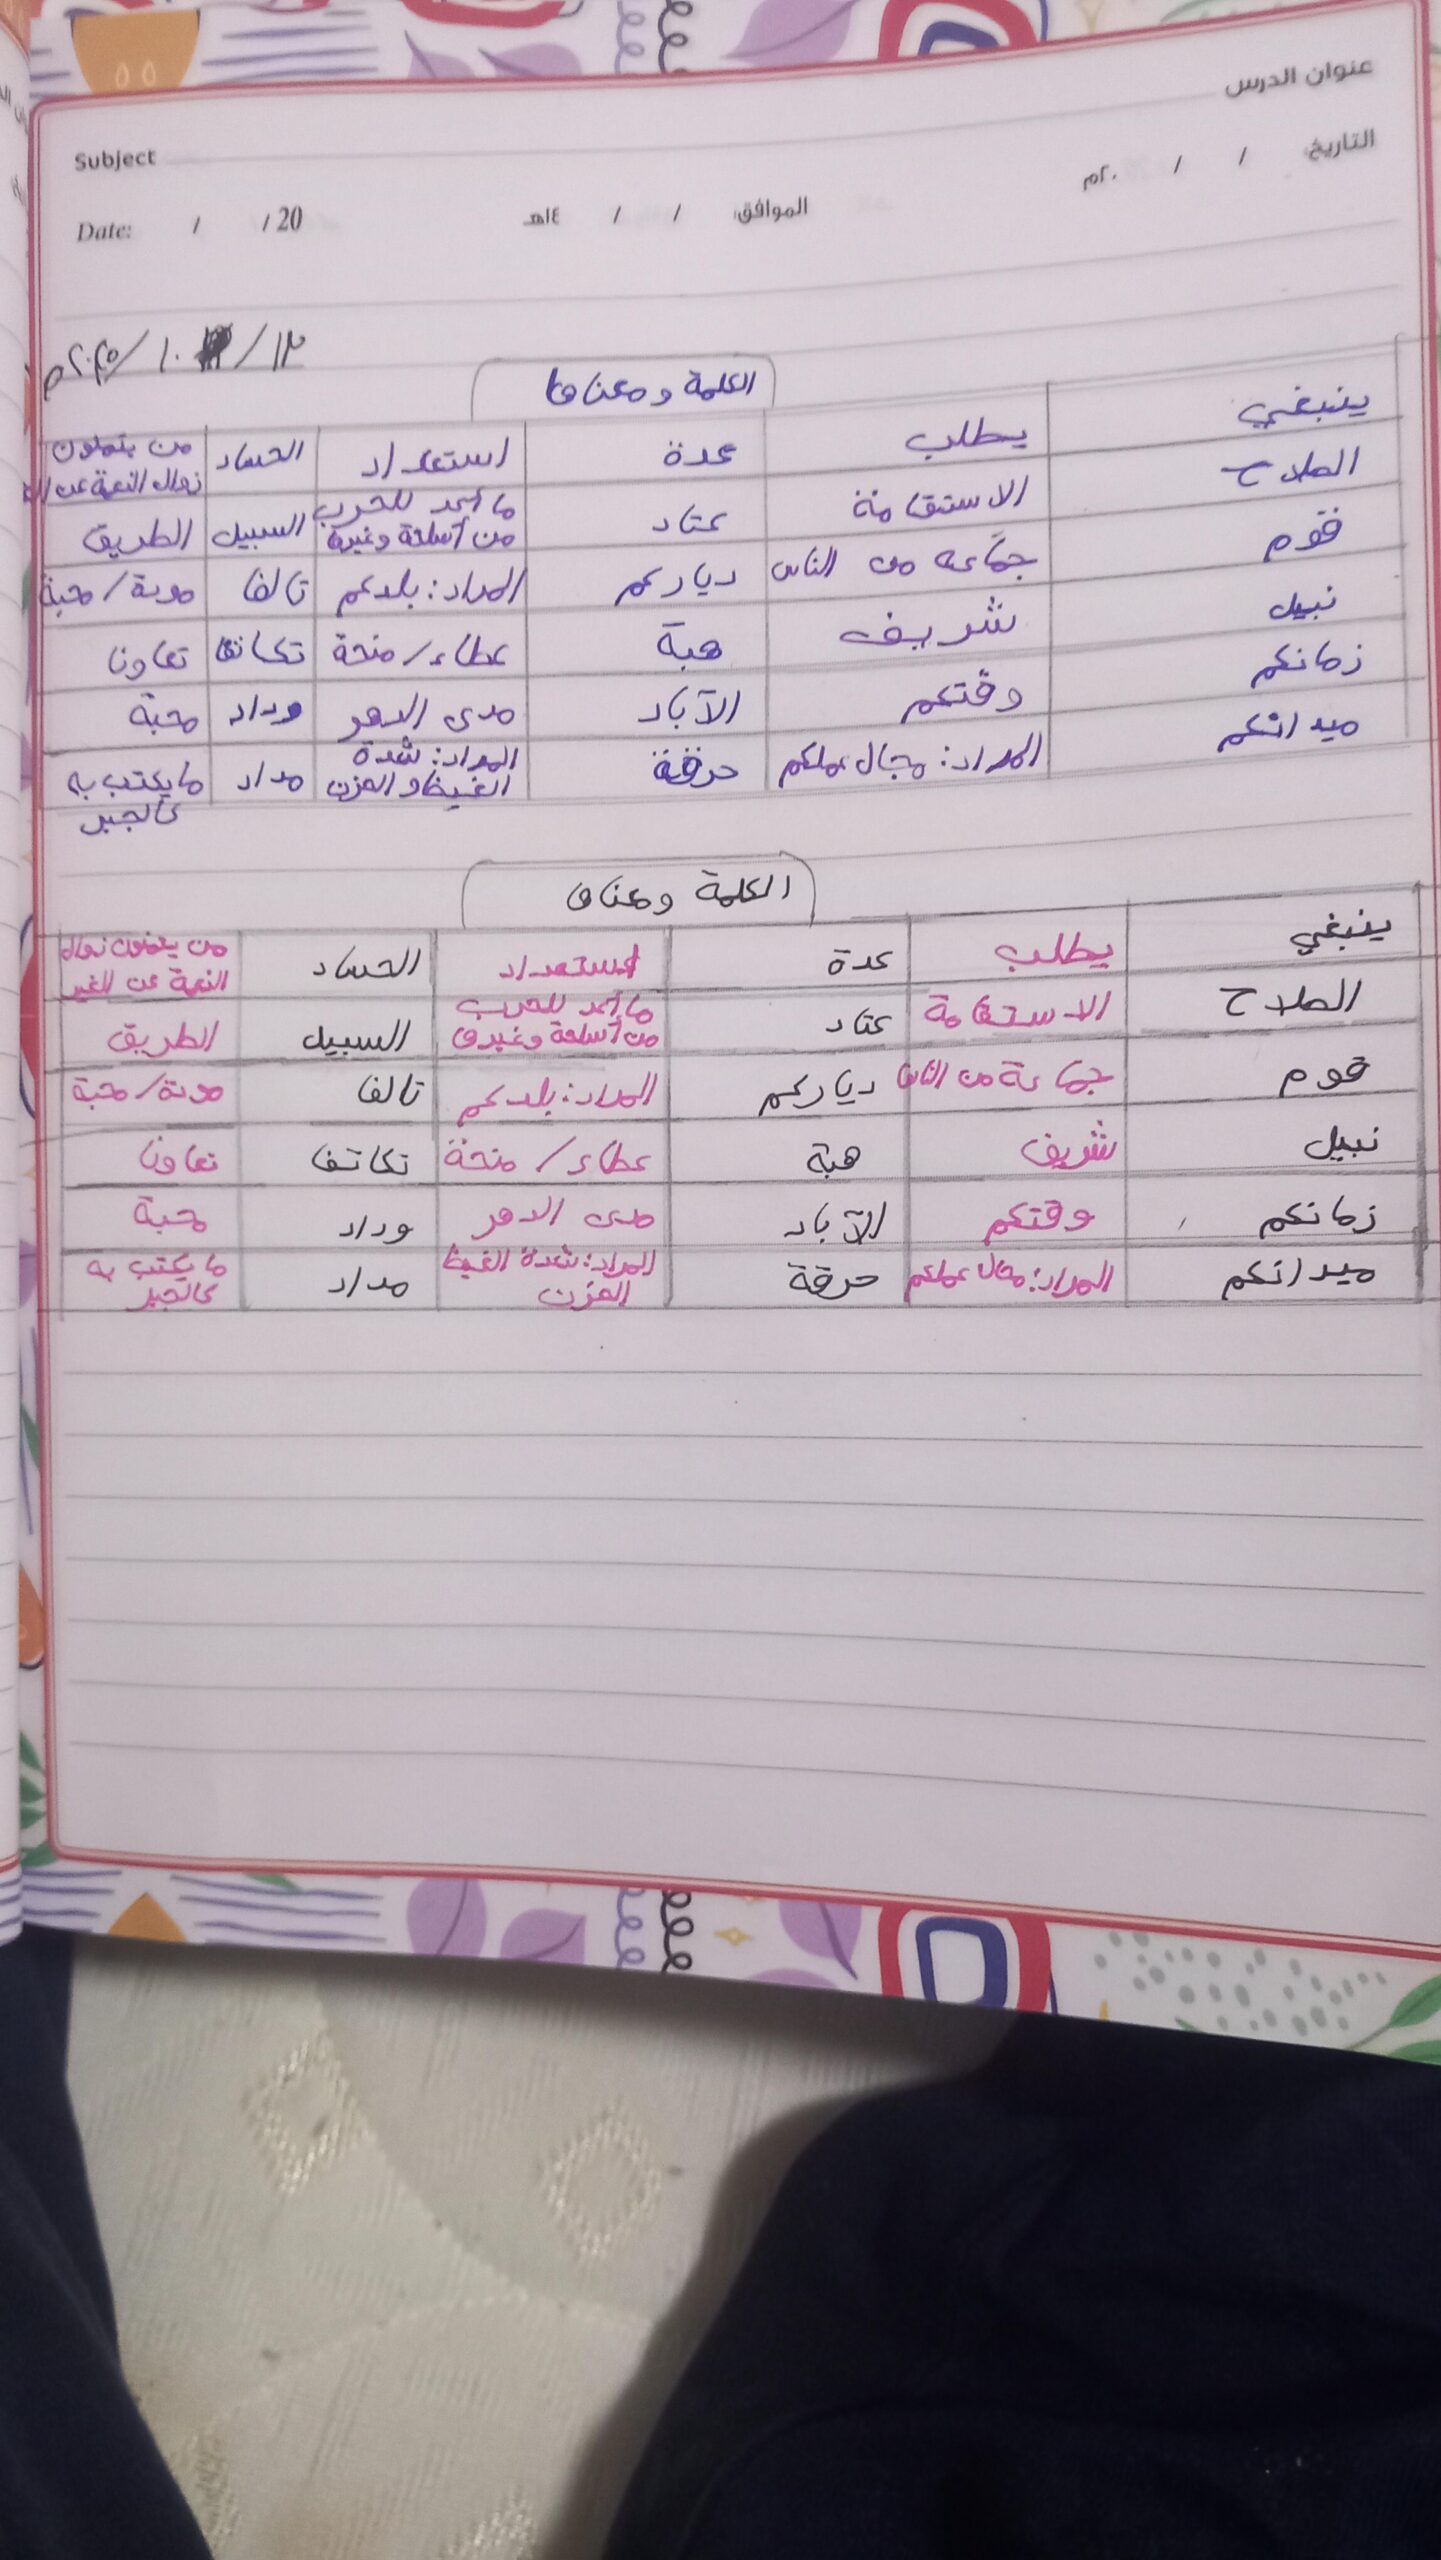 عنوان الدرس
Subject
التاريخ: / / ٢٠م
الموافق: / / ١٤هـ
Date: / / 20
١٢/ ١٠/ ٢٠٢٥م
الكلمة ومعناها
ينبغي يطلب عدة استعداد الحساد من يتمنون زوال النعمة عن
الصلاح الاستقامة عتاد ما أعد للحرب من أسلحة وغيرها السبيل الطريق
قوم جماعة من الناس دياركم المراد: بلدكم تالفا مودة/محبة
نبيل شريف هبة عطاء/منحة تكاتفا تعاونا
زمانكم وقتكم الآباد مدى الدهر وداد محبة
ميدانكم المراد: مجال عملكم حرقة المراد: شدة الغيظ والحزن مداد ما يكتب به كالحبر
الكلمة ومعناها
ينبغي يطلب عدة استعداد الحساد من يتمنون زوال النعمة عن الغير
الصلاح الاستقامة عتاد ما أعد للحرب من أسلحة وغيرها السبيل الطريق
قوم جماعة من الناس دياركم المراد: بلدكم تالفا مودة/محبة
نبيل شريف هبة عطاء/منحة تكاتفا تعاونا
زمانكم وقتكم الآباد مدى الدهر وداد محبة
ميدانكم المراد: مجال عملكم حرقة المراد: شدة الغيظ الحزن مداد ما يكتب به كالحبر